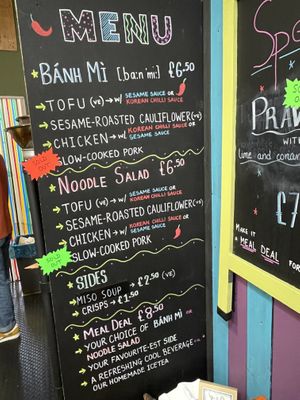 MENU
BÁNH MÌ [ba:n mi:] £6.50
TOFU (ve) → w/ SESAME SAUCE OR KOREAN CHILLI SAUCE
SESAME-ROASTED CAULIFLOWER (ve)
CHICKEN → w/ KOREAN CHILLI SAUCE OR SESAME SAUCE
SLOW-COOKED PORK
NOODLE SALAD £6.50
TOFU (ve) → w/ SESAME SAUCE OR KOREAN CHILLI SAUCE
SESAME-ROASTED CAULIFLOWER (ve)
CHICKEN → w/ KOREAN CHILLI SAUCE OR SESAME SAUCE
SLOW-COOKED PORK
SOLD
SIDES
MISO SOUP → £2.50 (VE)
CRISPS → £1.50
MEAL DEAL £8.50
YOUR CHOICE OF BÁNH MÌ OR
NOODLE SALAD
YOUR FAVOURITE-EST SIDE
A REFRESHING COOL BEVERAGE OR
OUR HOMEMADE ICETEA
Sp
PRAW
WITH
lime and
£7
MAKE IT
A MEAL DEAL